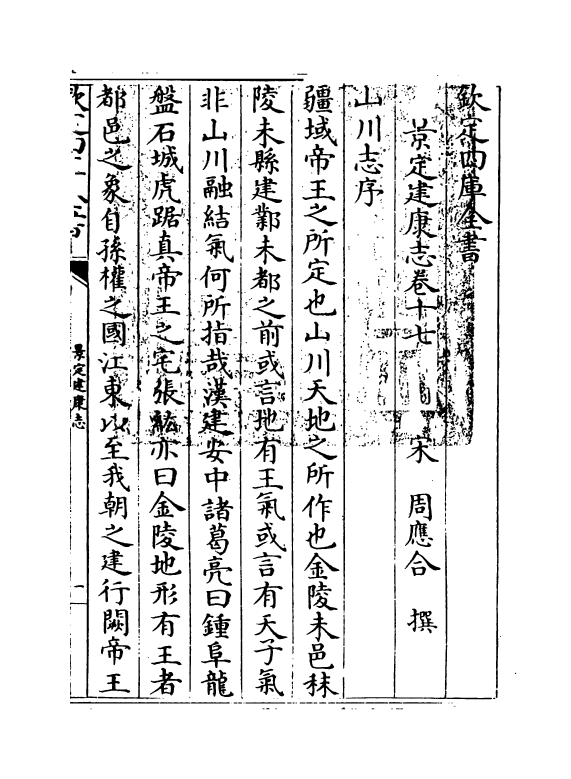 欽定四庫全書
景定建康志卷十七　宋　周應合　撰
山川志序
疆域帝王之所定也山川天地之所作也金陵未邑秣
陵未縣建鄴未都之前或言地有王氣或言有天子氣
非山川融結氣何所指哉漢建安中諸葛亮曰鍾阜龍
盤石城虎踞真帝王之宅張紘亦曰金陵地形有王者
都邑之象自孫權之國江東以至我朝之建行闕帝王
景定建康志
一